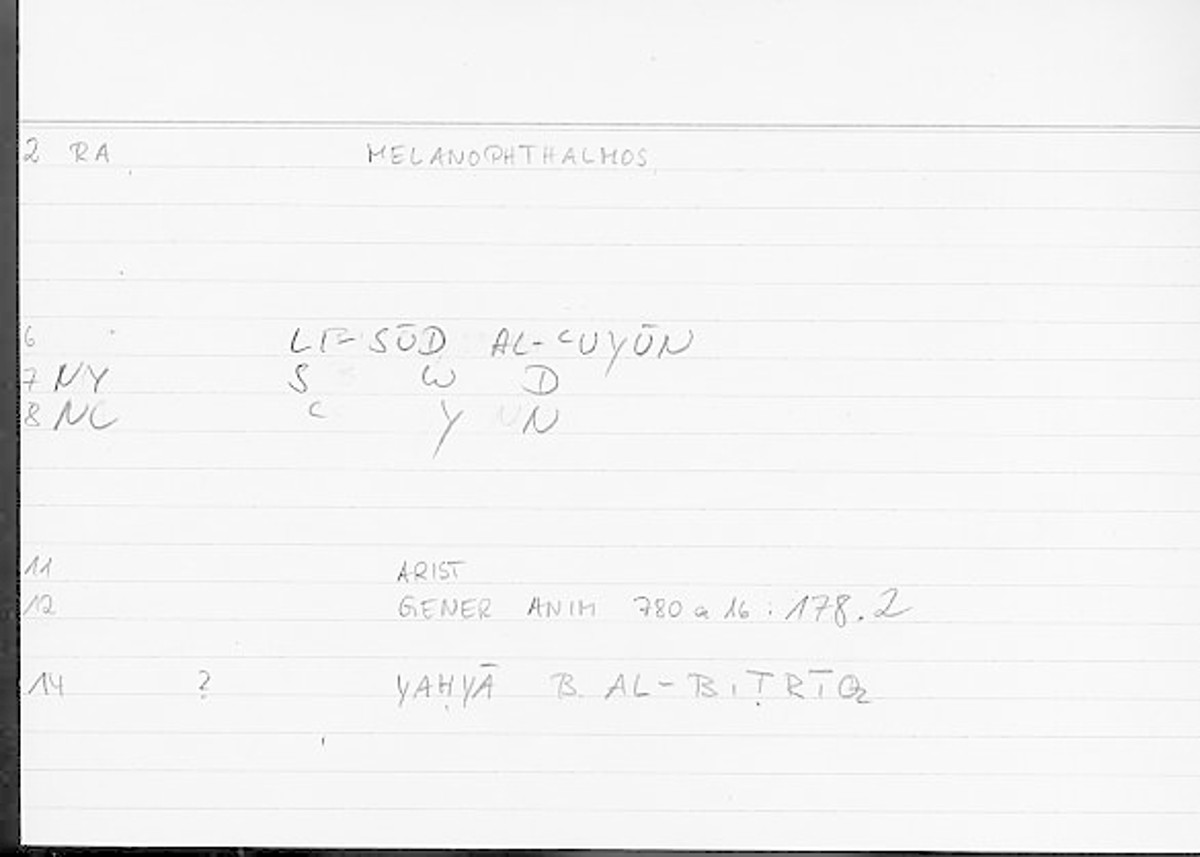 2 RA MELANOPHTHALMOS
6 LI-SŪD AL-ʿUYŪN
7 NY S W D
8 NC ʿ Y N
11 ARIST
12 GENER ANIM 780 a 16 : 178.2
14 ? YAḤYĀ B. AL-BIṬRĪQ